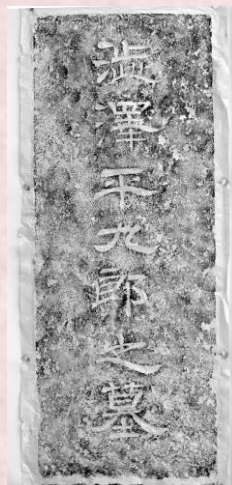 澁澤平九郎之墓